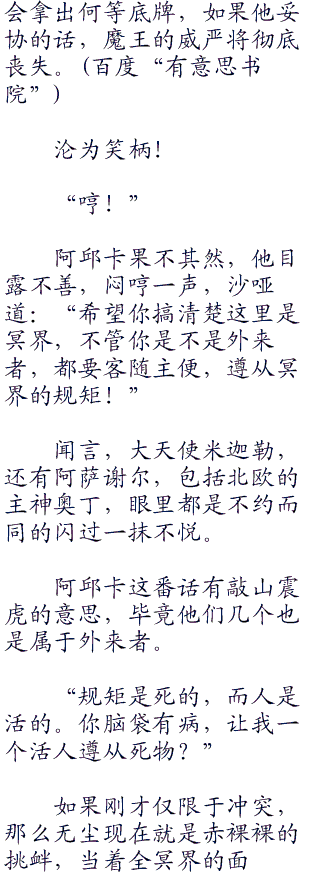 会拿出何等底牌，如果他妥
协的话，魔王的威严将彻底
丧失。(百度“有意思书
院”)
沦为笑柄！
“哼！”
阿邱卡果不其然，他目
露不善，闷哼一声，沙哑
道：“希望你搞清楚这里是
冥界，不管你是不是外来
者，都要客随主便，遵从冥
界的规矩！”
闻言，大天使米迦勒，
还有阿萨谢尔，包括北欧的
主神奥丁，眼里都是不约而
同的闪过一抹不悦。
阿邱卡这番话有敲山震
虎的意思，毕竟他们几个也
是属于外来者。
“规矩是死的，而人是
活的。你脑袋有病，让我一
个活人遵从死物？”
如果刚才仅限于冲突，
那么无尘现在就是赤裸裸的
挑衅，当着全冥界的面